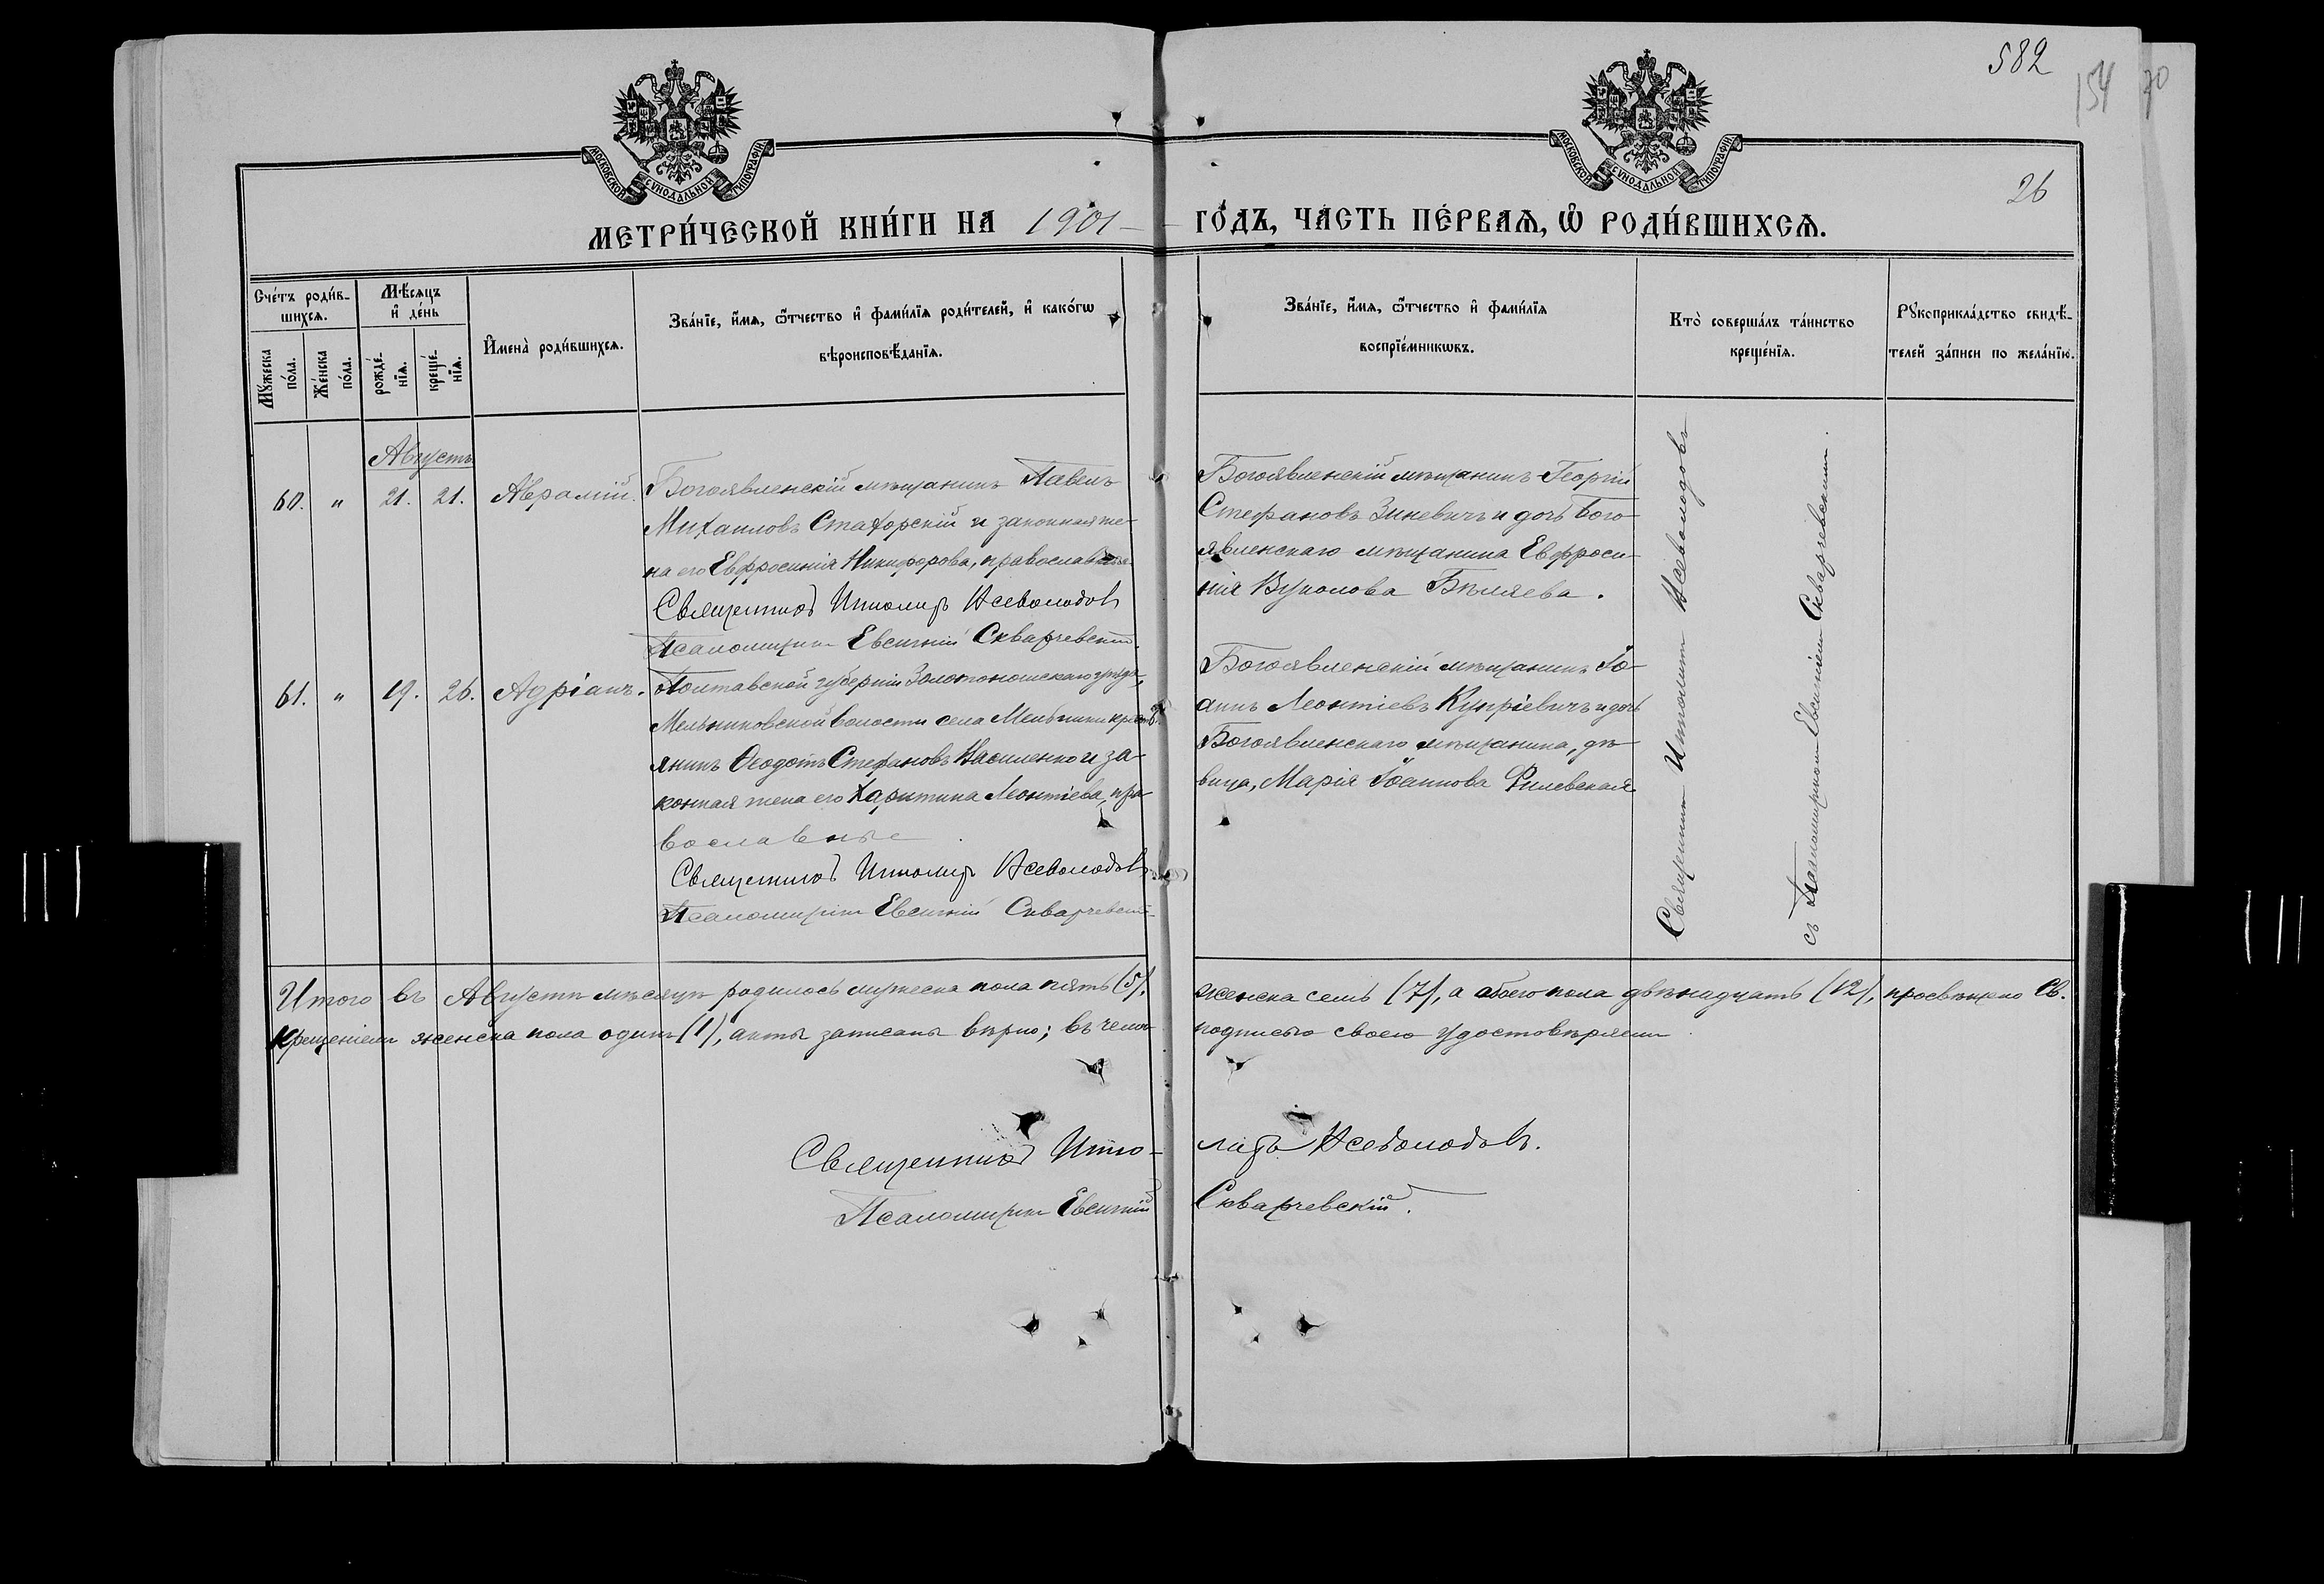 582
154
70
26
МОСКОВСКОЙ СѴНОДАЛЬНОЙ ТИПОГРАФІИ
МОСКОВСКОЙ СѴНОДАЛЬНОЙ ТИПОГРАФІИ
МЕТРИ́ЧЕСКОЙ КНИ́ГИ НА 1901 ГО́ДЪ, ЧА́СТЬ ПЕ́РВАѦ, Ѡ҆ РОДИ́ВШИХСѦ.
Сче́тъ роди́в-
шихсѧ.
Мꙋ́жеска
по́ла.
Же́нска
по́ла.
Мѣ́сѧцъ
и҆ де́нь
рожде́-
нїѧ.
креще́-
нїѧ.
И҆мена̀ роди́вшихсѧ.
Зва́нїе, и҆́мѧ, ѻ҆́тчество и҆ фами́лїѧ роди́телей, и҆ како́гѡ
вѣроисповѣ́данїѧ.
Зва́нїе, и҆́мѧ, ѻ҆́тчество и҆ фами́лїѧ
воспрїе́мникѡвъ.
Кто̀ соверша́лъ та́инство
креще́нїѧ.
Рꙋкоприкла́дство свидѣ́-
телей за́писи по жела́нїю.
Августъ
60. " 21. 21. Аврамій.
Богоявленскій мѣщанинъ Павелъ
Михаиловъ Стахорскій и законная же-
на его Евфросинія Никифорова, православные
Священникъ Ипполитъ Всеволодовъ
Псаломщикъ Евсигній Скварчевскій.
Богоявленскій мѣщанинъ Георгій
Стефановъ Зиневичъ и дочь Бого-
явленскаго мѣщанина Евфроси-
нія Вуколова Бѣляева.
61. " 19. 26. Адріанъ.
Полтавской губерніи Золотоношскаго уѣзда,
Мельниковской волости села Мельники крест-
янинъ Ѳеодотъ Стефановъ Василенко и за-
конная жена его Харитина Леонтіева, пра-
вославные
Священникъ Ипполитъ Всеволодовъ
Псаломщикъ Евсигній Скварчевскій
Богоявленскій мѣщанинъ Іо-
аннъ Леонтіевъ Купріевичъ и дочь
Богоявленскаго мѣщанина, дѣ-
вица, Марія Іоаннова Рилевская
Священникъ Ипполитъ Всеволодовъ
съ Псаломщикомъ Евсигніемъ Скварчевскимъ.
Итого въ Августѣ мѣсяцѣ родилось мужеска пола пять (5), женска семь (7), а обоего пола двѣнадцать (12), просвѣщено Св.
Крещеніемъ женска пола одинъ (1), акты записаны вѣрно; въ чемъ подписью своею удостовѣряемъ.
Священникъ Иппо- литъ Всеволодовъ.
Псаломщикъ Евсигній Скварчевскій.